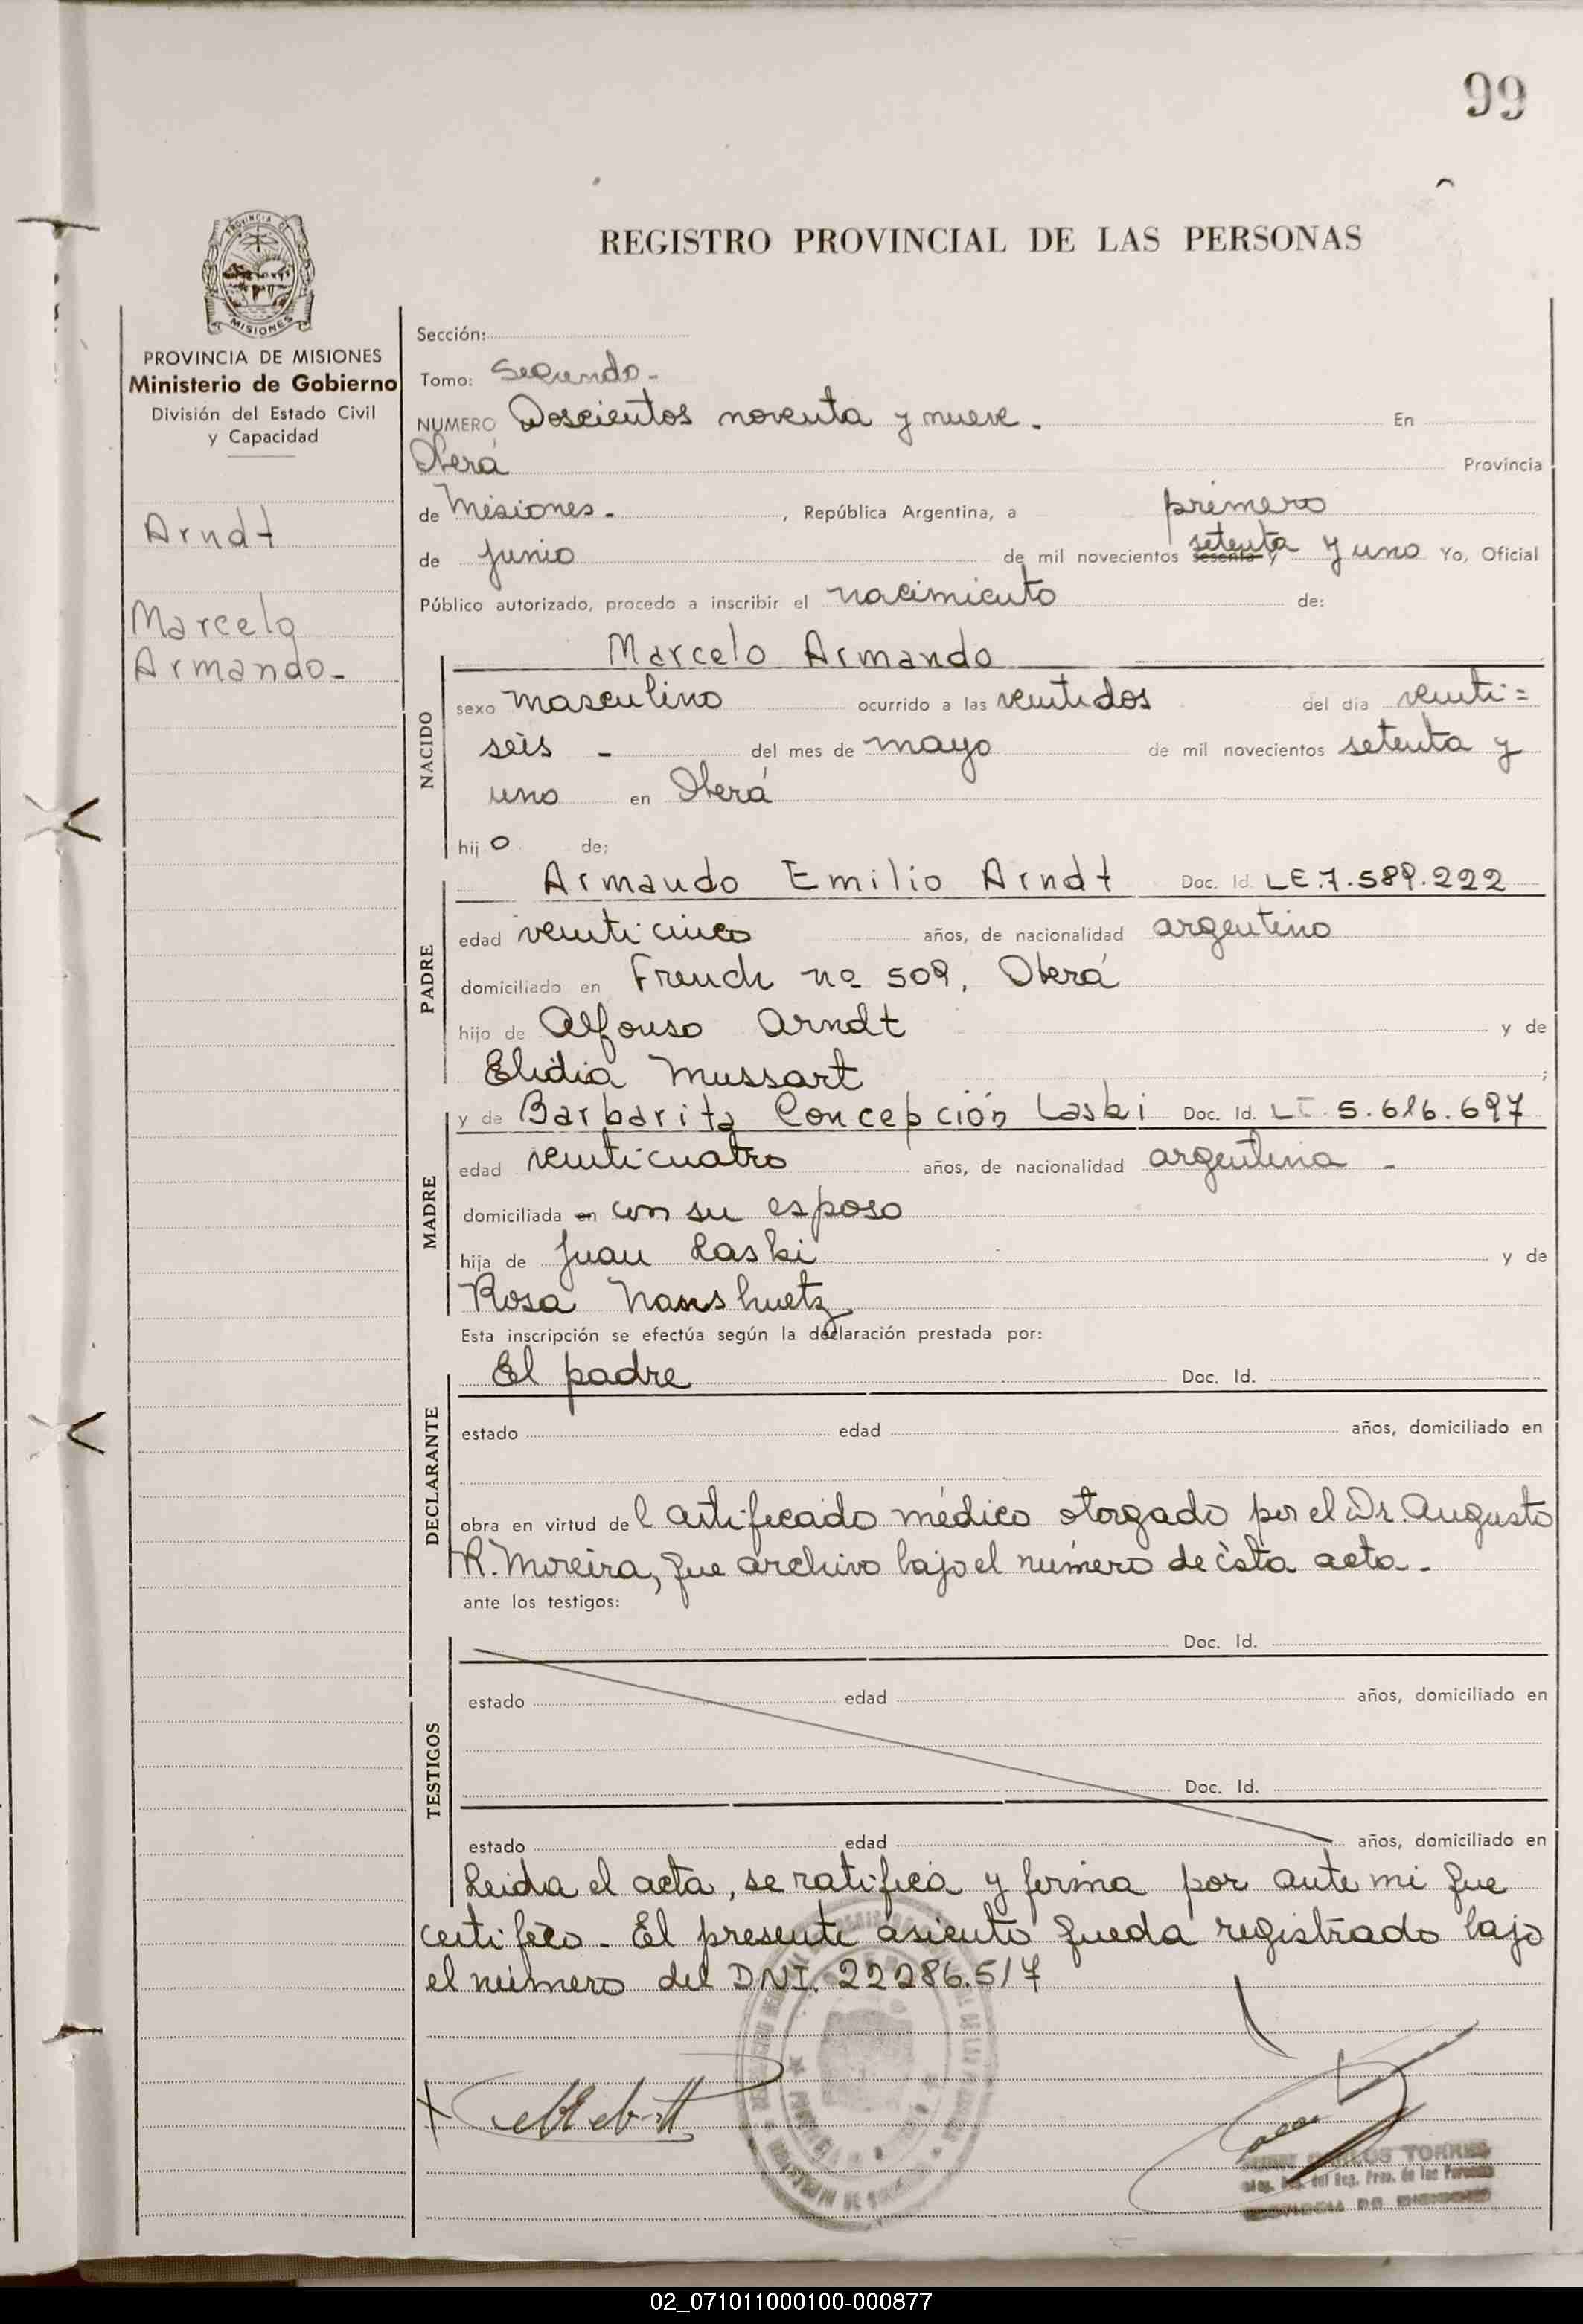 99
REGISTRO PROVINCIAL DE LAS PERSONAS
PROVINCIA DE
MISIONES
PROVINCIA DE MISIONES
Ministerio de Gobierno
División del Estado Civil
y Capacidad
Arndt
Marcelo
Armando-
Sección:
Tomo: Segundo-
NUMERO Doscientos noventa y nueve. En
Oberá Provincia
de Misiones. , República Argentina, a primero
de junio de mil novecientos sesenta y setenta y uno Yo, Oficial
Público autorizado, procedo a inscribir el nacimiento de:
Marcelo Armando
NACIDO
sexo masculino ocurrido a las veintidos del día veinti=
seis - del mes de mayo de mil novecientos setenta y
uno en Oberá
hijo de;
PADRE
Armando Emilio Arndt Doc. Id. LE.7.589.222
edad veinticinco años, de nacionalidad argentino
domiciliado en French nº 509, Oberá
hijo de Alfonso Arndt y de
Elidia Mussart ;
MADRE
y de Barbarita Concepción Laski Doc. Id. 5.616.697
edad veinticuatro años, de nacionalidad argentina -
domiciliada en con su esposo
hija de Juan Laski y de
Rosa
Esta inscripción se efectúa según la declaración prestada por:
DECLARANTE
El padre Doc. Id.
estado edad años, domiciliado en
obra en virtud del certificado médico otorgado por el Dr. Augusto
R. Moreira, que archivo bajo el número de ésta acta.-
ante los testigos:
TESTIGOS
Doc. Id.
estado edad años, domiciliado en
Doc. Id.
estado edad años, domiciliado en
Leida el acta, se ratifica y firma por ante mi que
certifico. El presente asiento queda registrado bajo
el número del DNI. 22286.517
CARLOS TORRES
del Reg. Prov. de las Personas
02_071011000100-000877